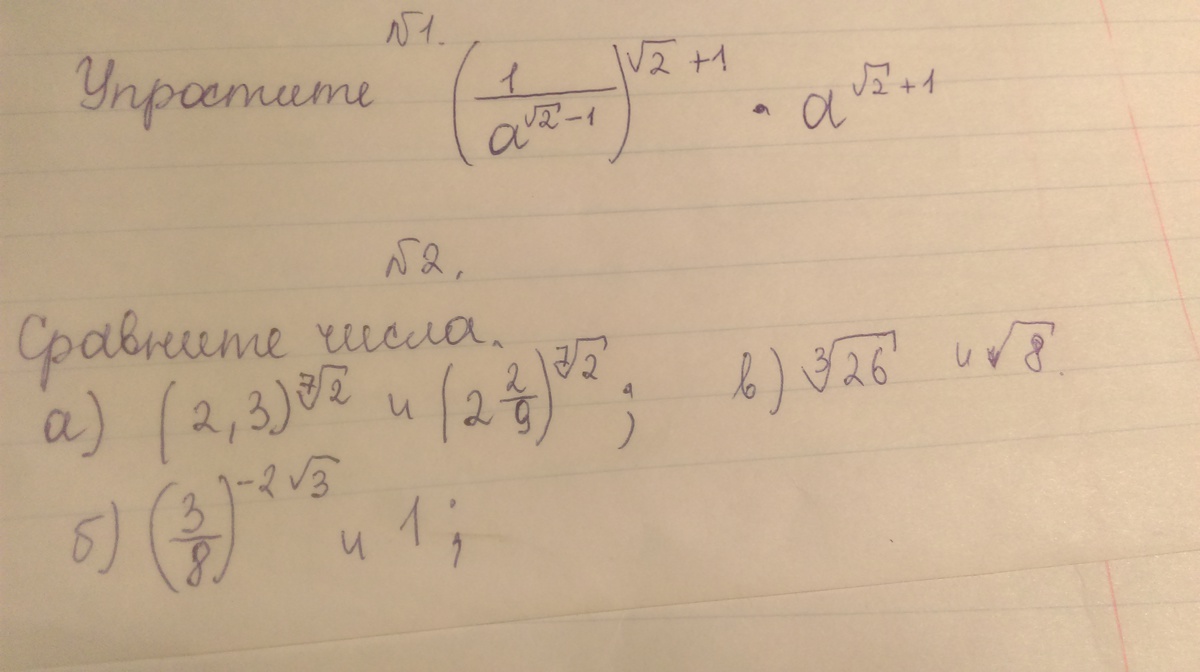 №1.
Упростите (1/a^(√2-1))^(√2+1) · a^(√2+1)
№2.
Сравните числа.
а) (2,3)^(⁷√2) и (2 2/9)^(⁷√2) ; в) ³√26 и √8.
б) (3/8)^(-2√3) и 1 ;